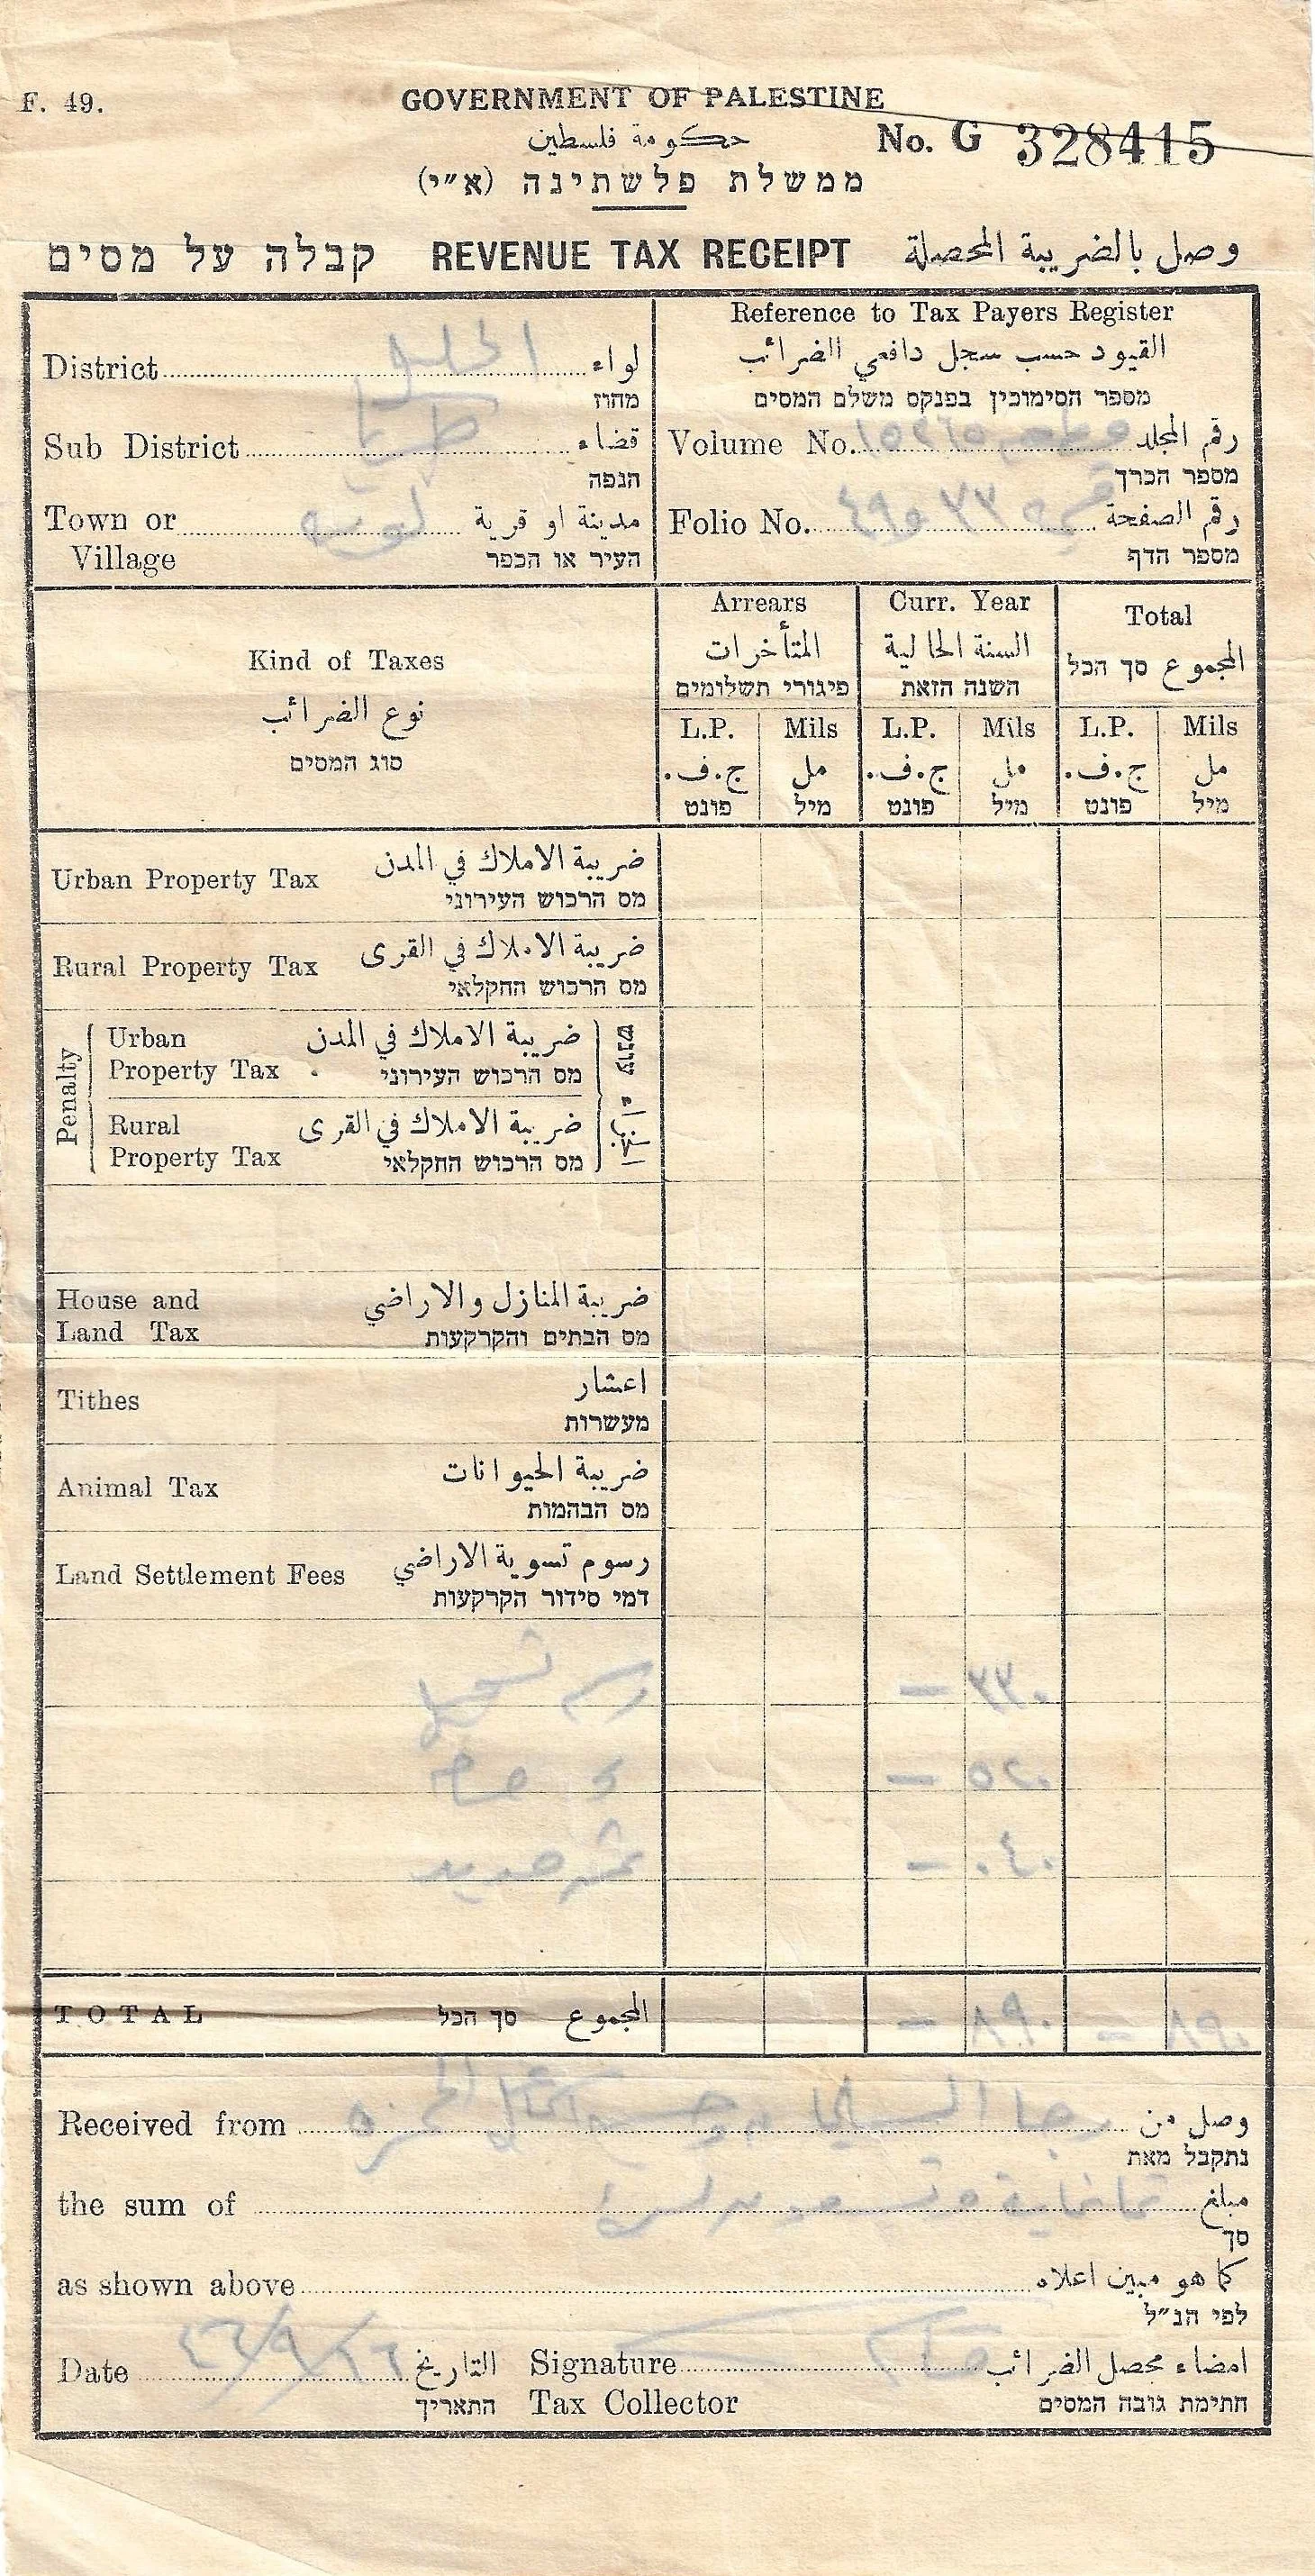 F. 49.
GOVERNMENT OF PALESTINE
حكومة فلسطين
No. G 328415
ממשלת פלשתינה (א״י)
קבלה על מסים REVENUE TAX RECEIPT وصل بالضريبة المحصلة
Reference to Tax Payers Register
القيود حسب سجل دافعي الضرائب
מספר הסימוכין בפנקס משלם המסים
District لواء
מחוז
Sub District طبريا قضاء
הנפה
Town or Village لوبيه مدينة او قرية
העיר או הכפר
Volume No. رقم المجلد
מספר הכרך
Folio No. رقم الصفحة
מספר הדף
Kind of Taxes
نوع الضرائب
סוג המסים
Arrears
المتأخرات
פיגורי תשלומים
Curr. Year
السنة الحالية
השנה הזאת
Total
المجموع סך הכל
L.P. Mils L.P. Mils L.P. Mils
ج.ف. مل ج.ف. مل ج.ف. مل
פונט מיל פונט מיל פונט מיל
Urban Property Tax ضريبة الاملاك في المدن
מס הרכוש העירוני
Rural Property Tax ضريبة الاملاك في القرى
מס הרכוש החקלאי
Penalty
Urban ضريبة الاملاك في المدن
Property Tax מס הרכוש העירוני
עונש
Rural ضريبة الاملاك في القرى
Property Tax מס הרכוש החקלאי
House and ضريبة المنازل والاراضي
Land Tax מס הבתים והקרקעות
Tithes اعشار
מעשרות
Animal Tax ضريبة الحيوانات
מס הבהמות
Land Settlement Fees رسوم تسوية الاراضي
דמי סידור הקרקעות
— ٠٢٥
— ٠٤٠
TOTAL סך הכל المجموع — ٠٩٨ — ٠٩٨
Received from وصل من
נתקבל מאת
the sum of مبلغ
סך
as shown above كما هو مبين اعلاه
לפי הנ״ל
Date ٤٦/٩/٢٦ التاريخ
התאריך
Signature امضاء محصل الضرائب
Tax Collector חתימת גובה המסים